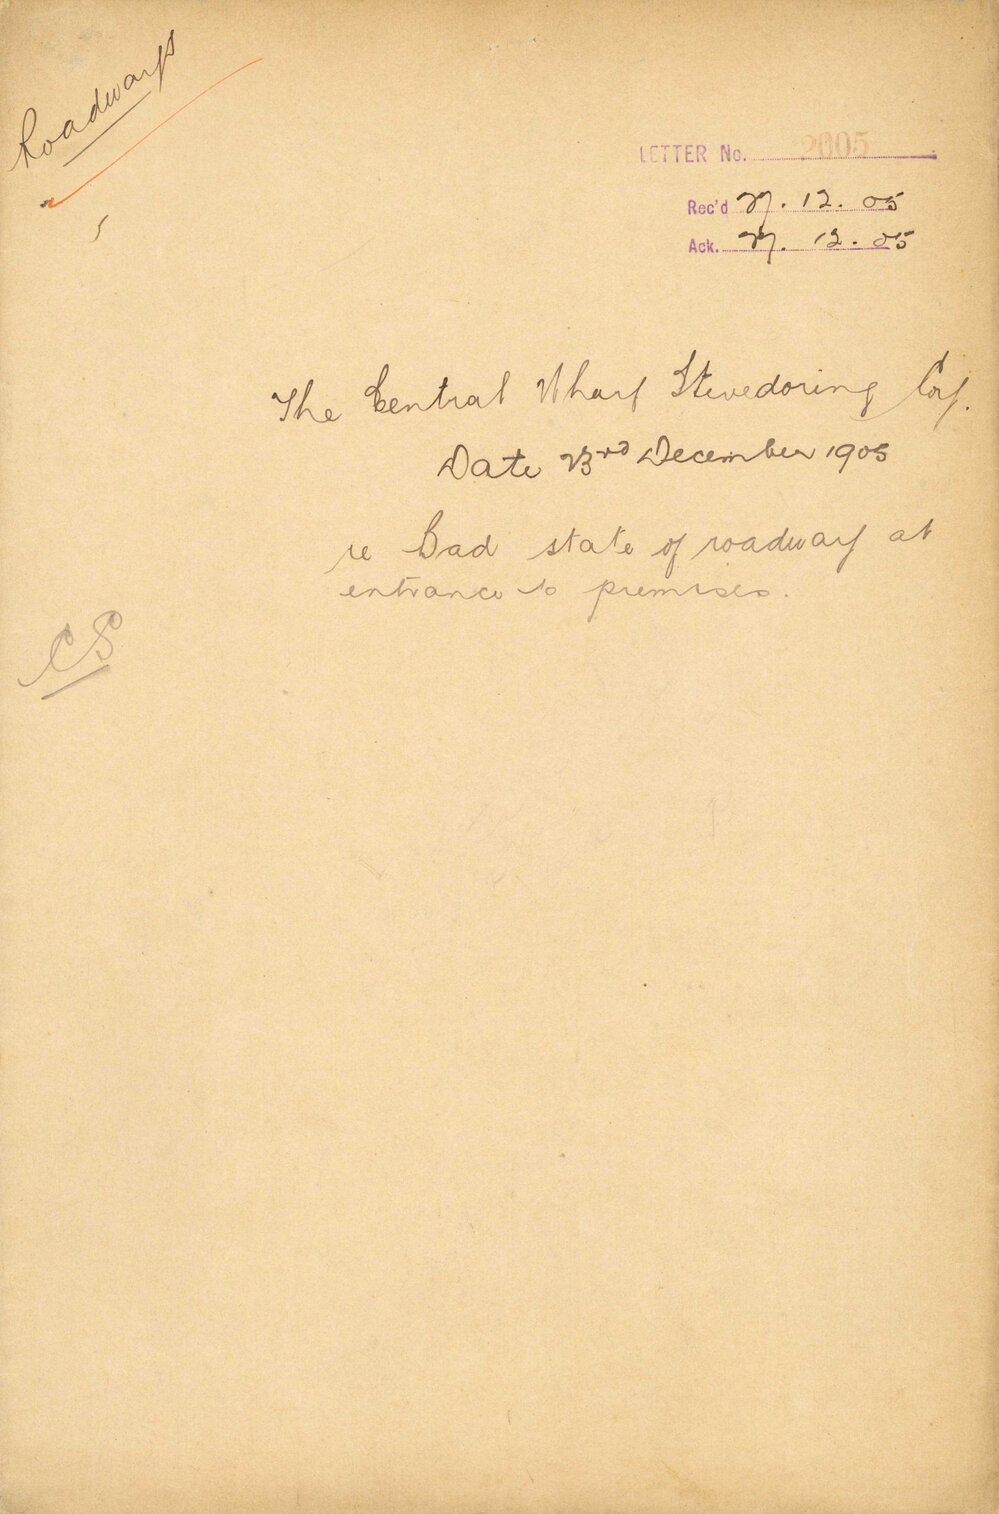 Roadways
5
LETTER No. 2005
Rec'd 27. 12. 05
Ack. 27. 12. 05
The Central Wharf Stevedoring Coy.
Date 23rd December 1905
re Bad state of roadway at
entrance to premises.
CS